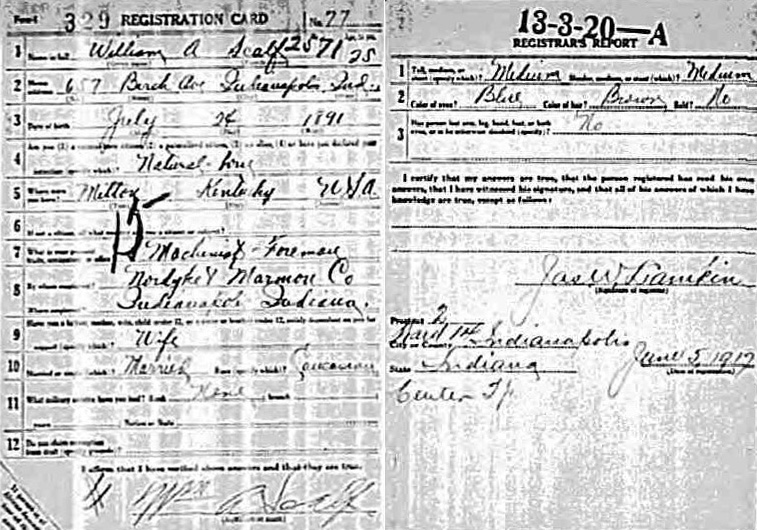 Form 1 329 REGISTRATION CARD No. 77
1 Name in full William A Scalf 2571 25
2 Home address 657 Birch Ave Indianapolis Ind.
3 Date of birth July 24 1891
4 Are you (1) a natural-born citizen, (2) a naturalized citizen, (3) an alien, (4) or have you declared your intention (specify which)? Natural born
5 Where were you born? Milton Kentucky USA
6 If not a citizen, of what country are you a citizen or subject?
15
7 Machinist - Foreman
8 By whom employed? Nordyke & Marmon Co
Where employed? Indianapolis Indiana.
9 Have you a father, mother, wife, child under 12, or a sister or brother under 12, solely dependent on you for support (specify which)?
Wife
10 Married or single (which)? Married Race (specify which)? Caucasian
11 What military service have you had? Rank None branch
years Nation or State
12 Do you claim exemption from draft (specify grounds)?
I affirm that I have verified above answers and that they are true.
Wm A Scalf
(Signature or mark)
13-3-20—A
REGISTRAR'S REPORT
1 Tall, medium, or short (specify which)? Medium Slender, medium, or stout (which)? Medium
2 Color of eyes? Blue Color of hair? Brown Bald? No
3 Has person lost arm, leg, hand, foot, or both eyes, or is he otherwise disabled (specify)? No
I certify that my answers are true, that the person registered has read his own
answers, that I have witnessed his signature, and that all of his answers of which I have
knowledge are true, except as follows:
Jas W Rankin
(Signature of registrar)
Precinct 2
Ward 14
City or County Indianapolis
State Indiana June 5, 1917
(Date of registration)
Center Tp